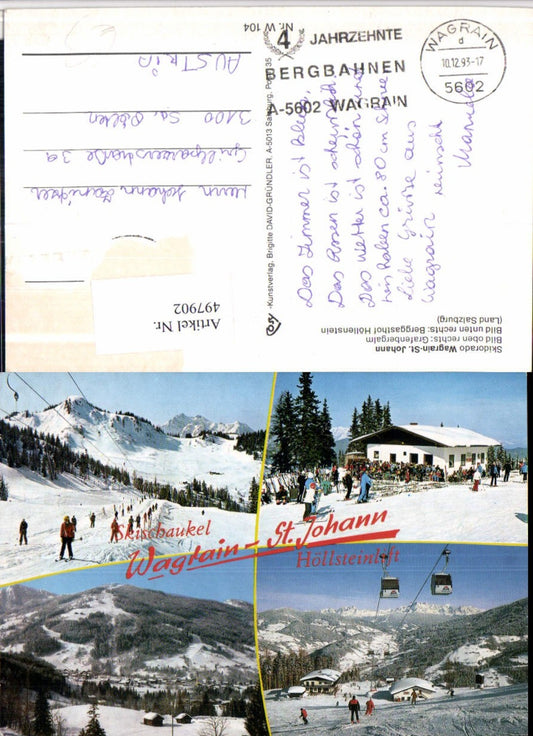 Skidorado Wagrain-St. Johann
Bild oben rechts: Grafenbergalm
Bild unten rechts: Berggasthof Höllenstein
(Land Salzburg)
-Kunstverlag, Brigitte DAVID-GRÜNDLER, A-5013 Salzburg, Postf. 35
Nr. W 104
4 JAHRZEHNTE
BERGBAHNEN
A-5602 WAGRAIN
WAGRAIN
d
10.12.93-17
5602
Das Zimmer ist klein,
Das Essen ist
Das Wetter ist schön und
wir haben ca. 80 cm
Liebe Grüsse aus
Wagrain wünscht
Manuela
Herrn Johann
Grillparzerstraße 3a
3100 St. Pölten
AUSTRIA
Artikel Nr.
497902
Skischaukel
Wagrain - St. Johann
Höllsteinlift